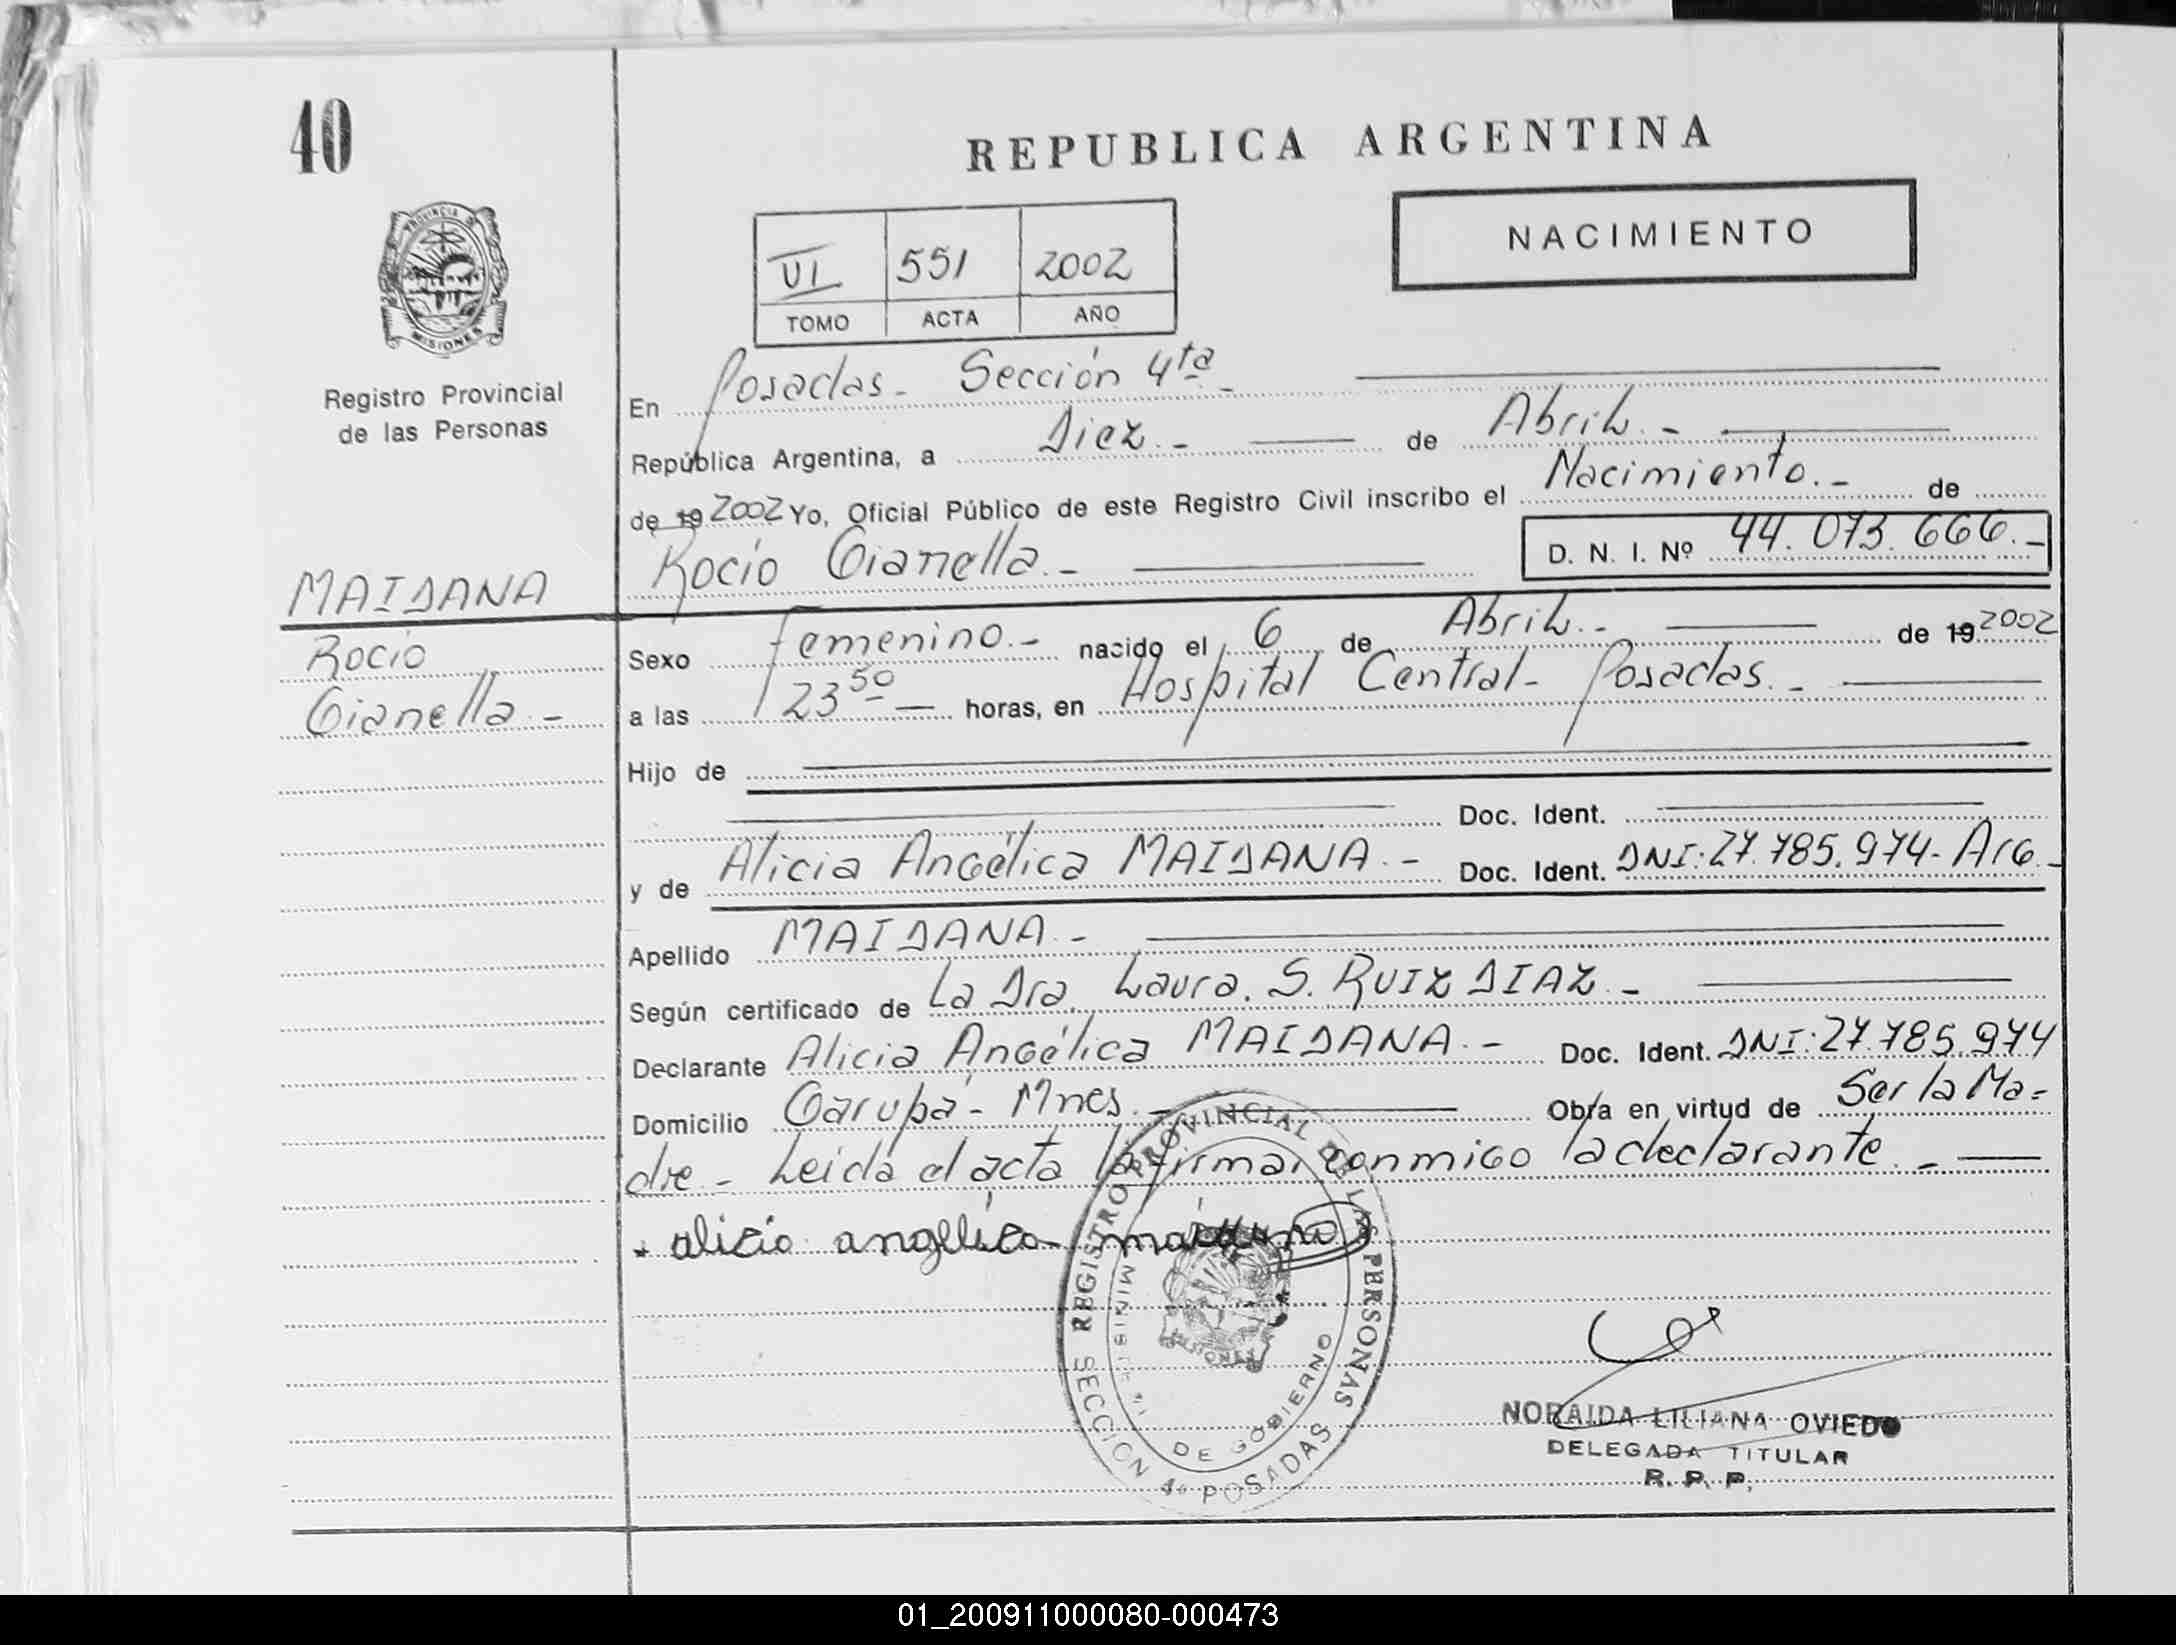 40
REPUBLICA ARGENTINA
PROVINCIA DE
MISIONES
Registro Provincial
de las Personas
NACIMIENTO
VI 551 2002
TOMO ACTA AÑO
En Posadas - Sección 4ta -
República Argentina, a Diez. - de Abril. -
de 19 2002 Yo, Oficial Público de este Registro Civil inscribo el Nacimiento. - de
Rocío Gianella. - D. N. I. Nº 44.073.666. -
MAIDANA
Rocío
Gianella. -
Sexo femenino. - nacido el 6 de Abril. - de 19 2002
a las 23 50 - horas, en Hospital Central - Posadas. -
Hijo de
Doc. Ident.
y de Alicia Angélica MAIDANA. - Doc. Ident. DNI: 27.785.974 - Arg. -
Apellido MAIDANA. -
Según certificado de La Dra. Laura. S. RUIZ DIAZ. -
Declarante Alicia Angélica MAIDANA. - Doc. Ident. DNI: 27.785.974
Domicilio Garupá - Mnes. - Obra en virtud de Ser la Ma=
dre - Leída el acta la firma conmigo la declarante. -
alicia angelica maidana
REGISTRO PROVINCIAL DE LAS PERSONAS
MINISTERIO DE GOBIERNO
SECCION 4º POSADAS
NORAIDA LILIANA OVIEDO
DELEGADA TITULAR
R. P. P.
01_200911000080-000473